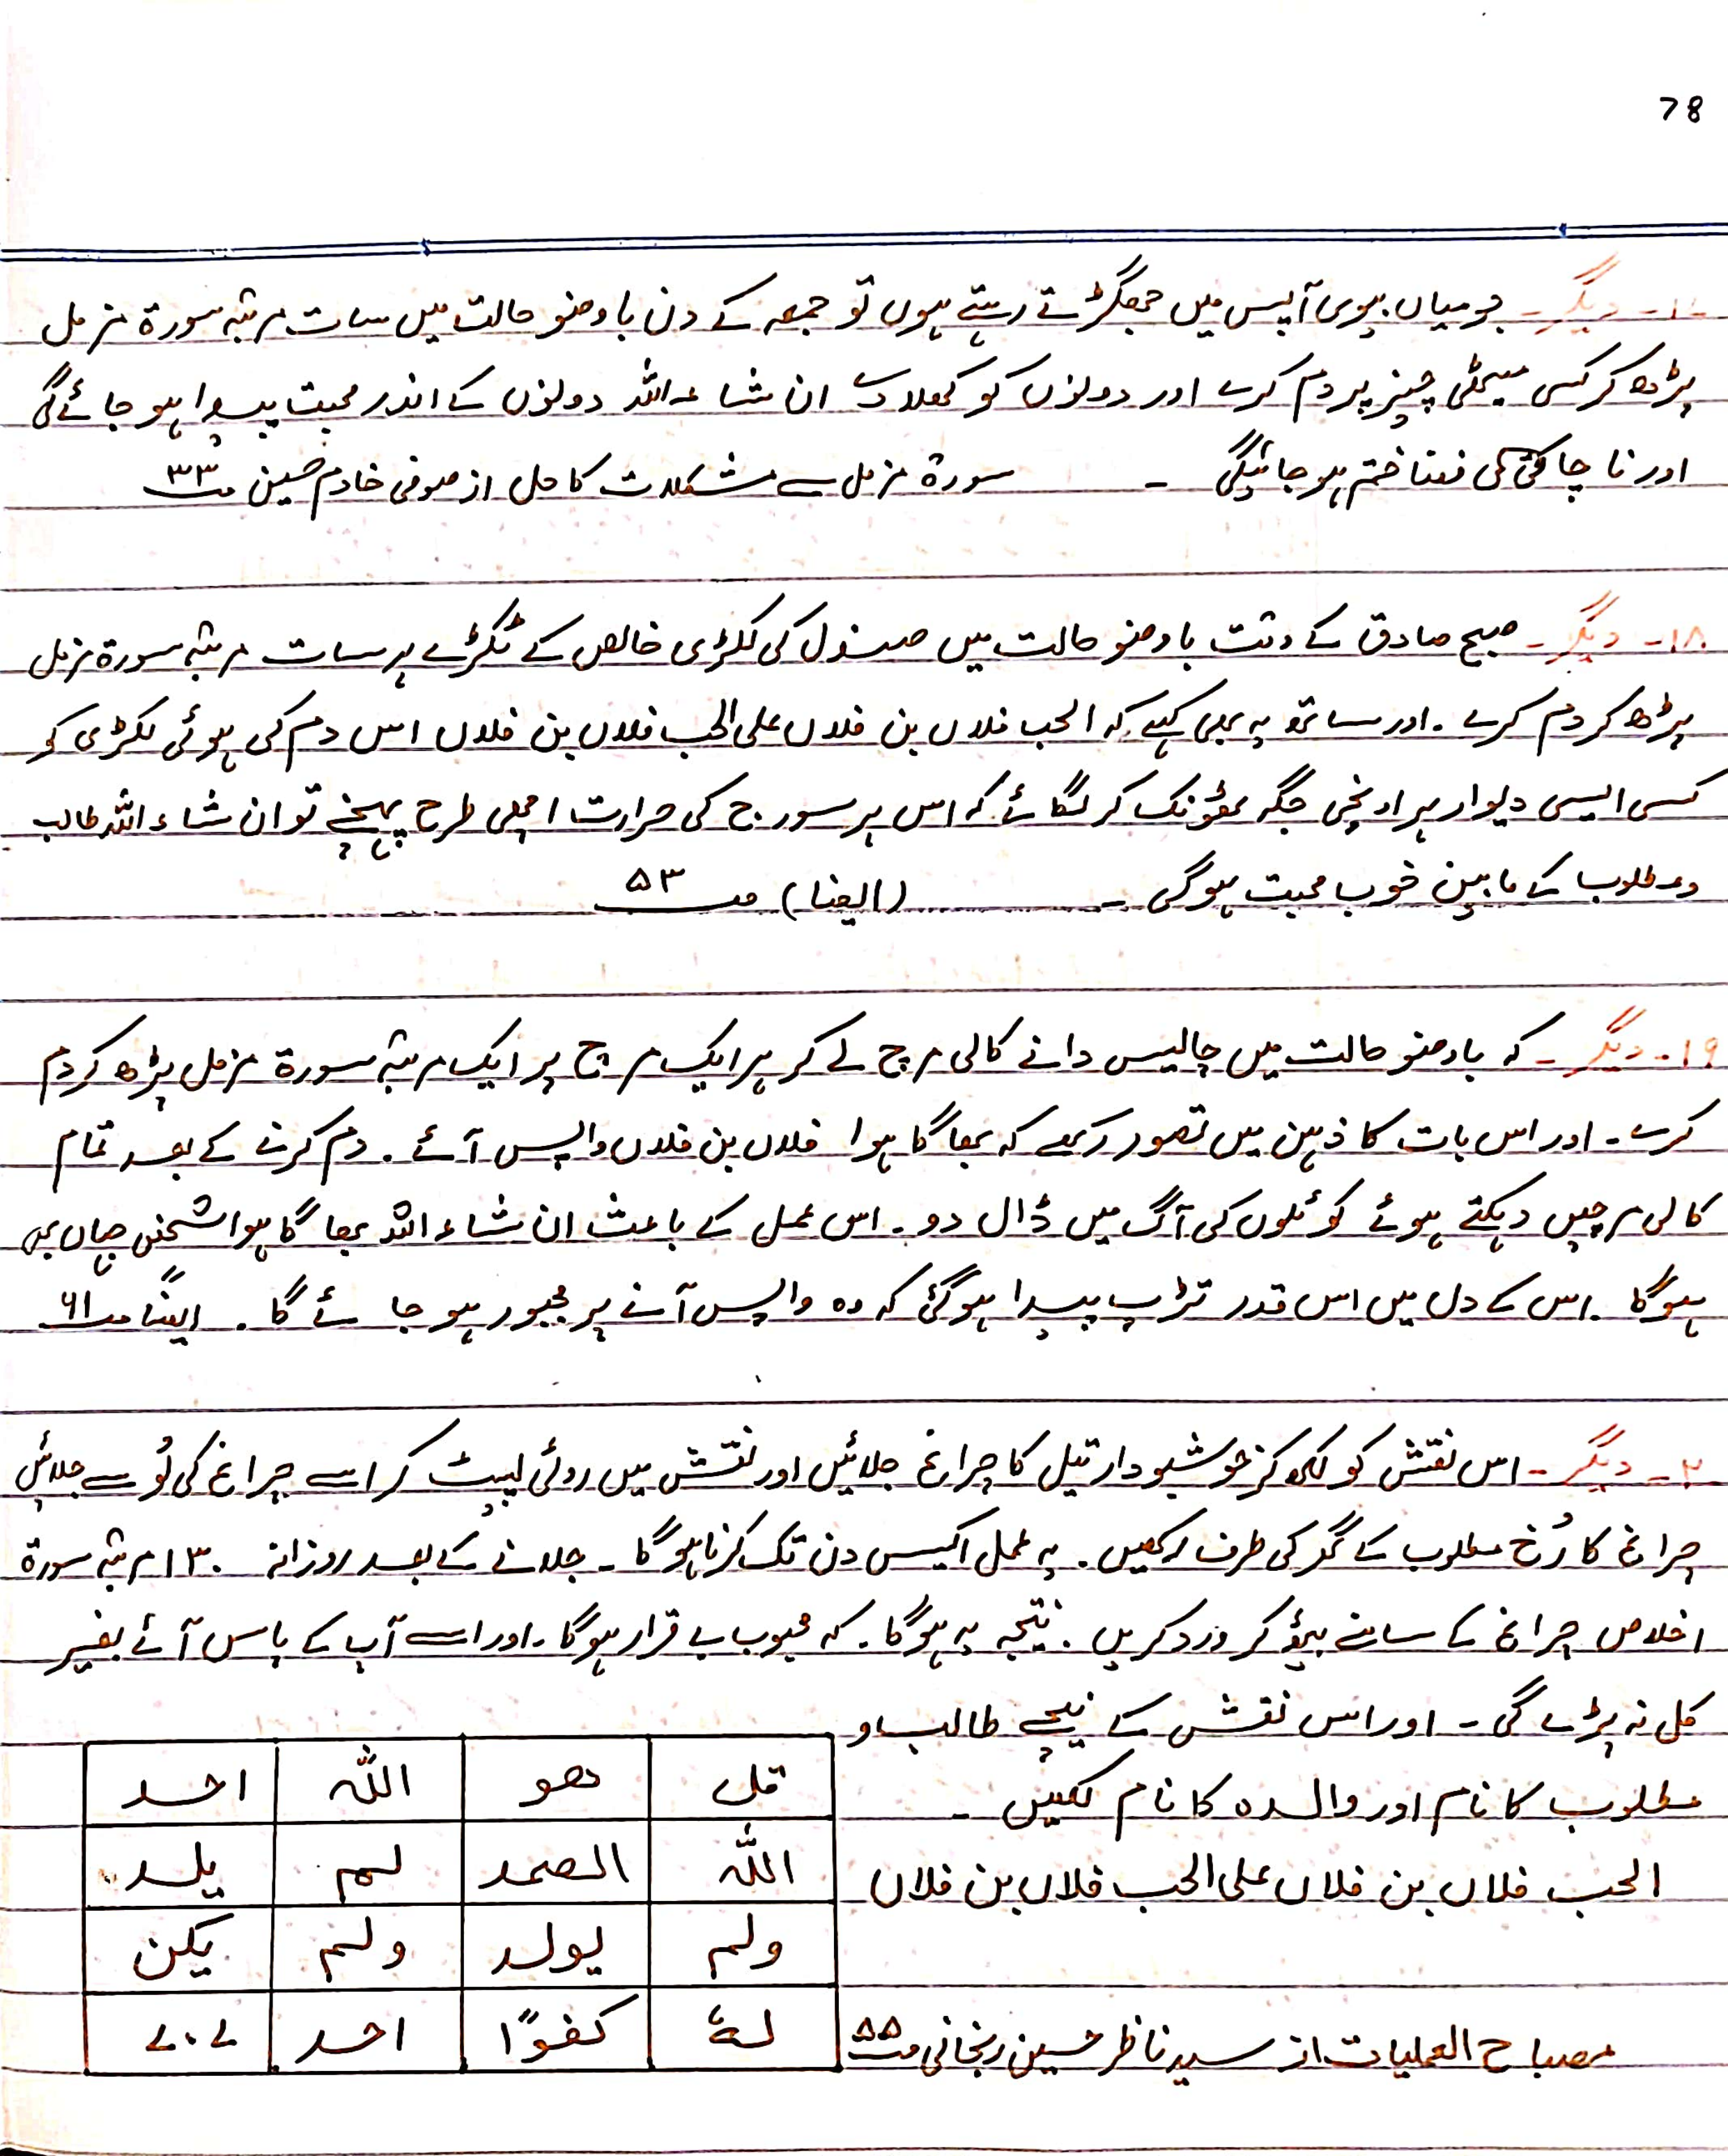 78
۱۷۔ دیگر۔ جو میاں بیوی آپس میں جھگڑتے رہتے ہوں تو جمعہ کے دن باوضو حالت میں سات مرتبہ سورۃ مزمل
پڑھ کر کسی میٹھی چیز پر دم کرے اور دونوں کو کھلادے ان شاءاللہ دونوں کے اندر محبت پیدا ہو جائے گی
اور ناچاقی کی فضا ختم ہو جائیگی ۔ سورۃ مزمل سے مشکلات کا حل از صوفی خادم حسین صـ ۳۳
۱۸۔ دیگر۔ صبح صادق کے وقت باوضو حالت میں صندل کی لکڑی خالص کے ٹکڑے پر سات مرتبہ سورۃ مزمل
پڑھ کر دم کرے ۔ اور ساتھ یہ بھی کہے کہ الحب فلاں بن فلاں علی الحب فلاں بن فلاں اس دم کی ہوئی لکڑی کو
کسی ایسی دیوار پر اونچی جگہ ٹھونک کر لگائے کہ اس پر سورج کی حرارت اچھی طرح پہنچے تو ان شاءاللہ طالب
و مطلوب کے مابین خوب محبت ہوگی ۔ (ایضا) صـ ۵۳
۱۹۔ دیگر ۔ کہ باوضو حالت میں چالیس دانے کالی مرچ لے کر ہر ایک مرچ پر ایک مرتبہ سورۃ مزمل پڑھ کر دم
کرے ۔ اور اس بات کا ذہین میں تصور رکھے کہ بھاگا ہوا فلاں بن فلاں واپس آئے ۔ دم کرنے کے بعد تمام
کالی مرچیں دہکتے ہوئے کوئلوں کی آگ میں ڈال دو ۔ اس عمل کے باعث ان شاءاللہ بھاگا ہوا شخص جہاں بھی
ہوگا ۔ اس کے دل میں اس قدر تڑپ پیدا ہوگئی کہ وہ واپس آنے پر مجبور ہو جائے گا ۔ ایضاً صـ ۶۱
۲۔ دیگر ۔ اس نقش کو لکھ کر خوشبودار تیل کا چراغ جلائیں اور نقش میں روئی لپیٹ کر اسے چراغ کی لُو سے جلائیں
چراغ کا رُخ مطلوب کے گھر کی طرف رکھیں ۔ یہ عمل اکیس دن تک کرنا ہوگا ۔ جلانے کے بعد روزانہ ۱۳۰ مرتبہ سورۃ
اخلاص چراغ کے سامنے بیٹھ کر ورد کریں ۔ نتیجہ یہ ہوگا ۔ کہ محبوب بے قرار ہوگا ۔ اور اسے آپ کے پاس آئے بغیر
کل نہ پڑے گی ۔ اور اس نقش کے نیچے طالب و
مطلوب کا نام اور والدہ کا نام لکھیں ۔
الحب فلاں بن فلاں علی الحب فلاں بن فلاں
مصباح العملیات از سید ناظر حسین زنجانی صـ ۵۵
قل ھو اللہ احد
اللہ الصمد لم یلد
ولم یولد ولم یکن
لہٗ کفوًا احد ۷۰۷